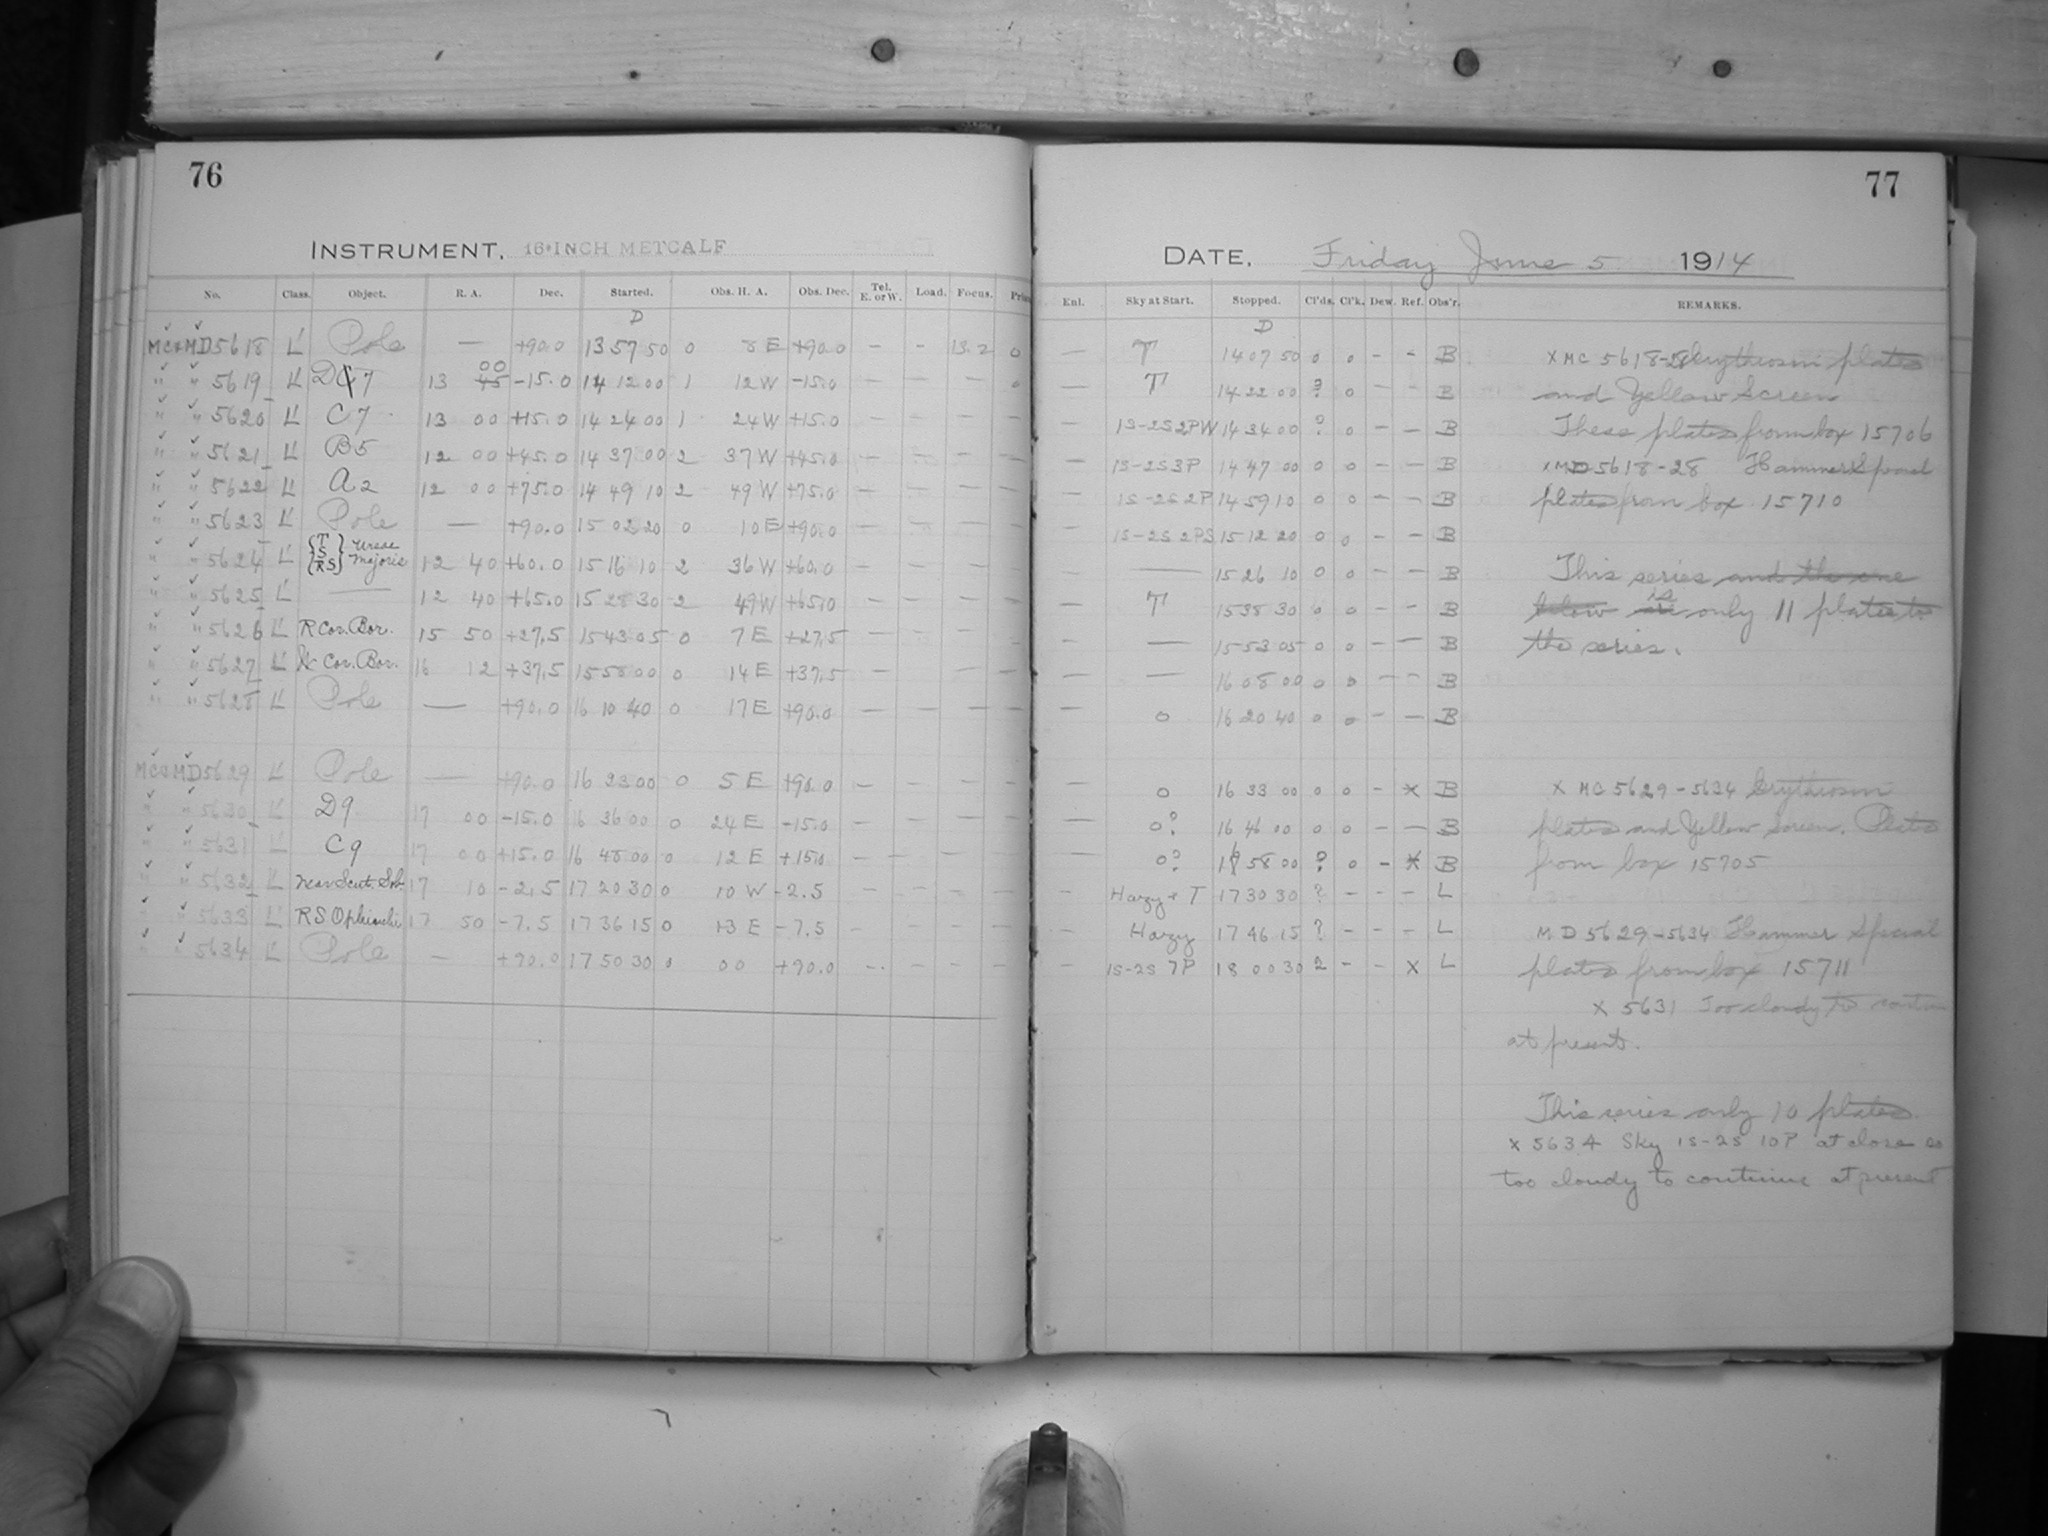 76
INSTRUMENT. 16-INCH METCALF
No. Class. Object. R. A. Dec. Started. Obs. H. A. Obs. Dec. Tel. E. or W. Load. Focus.
D
MC & MD 5618 L Pole — +90.0 13 57 50 0 8 E +90.0 — - 13.2 0
" " 5619 L DC7 13 00 45 -15.0 14 12 00 1 12 W -15.0 — — —
" " 5620 L C7 13 00 +15.0 14 24 00 1 24 W +15.0 — — — —
" " 5621 L B5 12 00 +45.0 14 37 00 2 37 W +45.0 — — — —
" " 5622 L A2 12 00 +75.0 14 49 10 2 49 W +75.0 — — — —
" " 5623 L Pole — +90.0 15 02 20 0 10 E +90.0 — — — —
" " 5624 L {T S RS} Ursae Majoris 12 40 +60.0 15 16 10 2 36 W +60.0 — — — —
" " 5625 L — 12 40 +65.0 15 28 30 2 49 W +65.0 — — — —
" " 5626 L R Cor. Bor. 15 50 +27.5 15 43 05 0 7 E +27.5 — — — —
" " 5627 L X Cor. Bor. 16 12 +37.5 15 58 00 0 14 E +37.5 — — — —
" " 5628 L Pole — +90.0 16 10 40 0 17 E +90.0 — — — —
MC & MD 5629 L Pole — +90.0 16 23 00 0 5 E +90.0 — — — —
" " 5630 L D9 17 00 -15.0 16 36 00 0 24 E -15.0 — — — —
" " 5631 L C9 17 00 +15.0 16 48 00 0 12 E +15.0 — — — —
" " 5632 L near Scut. Sob. 17 10 -2.5 17 20 30 0 10 W -2.5 — — — —
" " 5633 L RS Ophiuchi 17 50 -7.5 17 36 15 0 13 E -7.5 — — — —
" " 5634 L Pole — +90.0 17 50 30 0 00 +90.0 — — — —
77
DATE. Friday June 5 1914
Enl. Sky at Start. Stopped. Cl'ds. Cl'k. Dew. Ref. Obs'r. REMARKS.
D
— T 14 07 50 0 0 - - B x MC 5618-28 Erythrosin plates
— T 14 22 00 ? 0 - - B and Yellow Screen
— 1S-2S 2PW 14 34 00 ? 0 - - B These plates from box 15706
— 1S-2S 3P 14 47 00 0 0 - - B x MD 5618-28 Hammer Special
— 1S-2S 2P 14 59 10 0 0 - - B plates from box 15710
— 1S-2S 2PS 15 12 20 0 0 - - B
— — 15 26 10 0 0 - - B This series and the one
— T 15 38 30 0 0 - - B below are is only 11 plates to
— — 15 53 05 0 0 - - B the series.
— — 16 08 00 0 0 - - B
— 0 16 20 40 0 0 - - B
— 0 16 33 00 0 0 - x B x MC 5629-5634 Erythrosin
— 0? 16 46 00 0 0 - - B plates and Yellow Screen. Plates
— 0? 16 58 00 ? 0 - x B from box 15705
— Hazy + T 17 30 30 ? - - - L
— Hazy 17 46 15 ? - - - L MD 5629-5634 Hammer Special
— 1S-2S 7P 18 00 30 2 - - x L plates from box 15711
x 5631 Too cloudy to
at present.
This series only 10 plates.
x 5634 Sky 1S-2S 10P at close so
too cloudy to continue at present